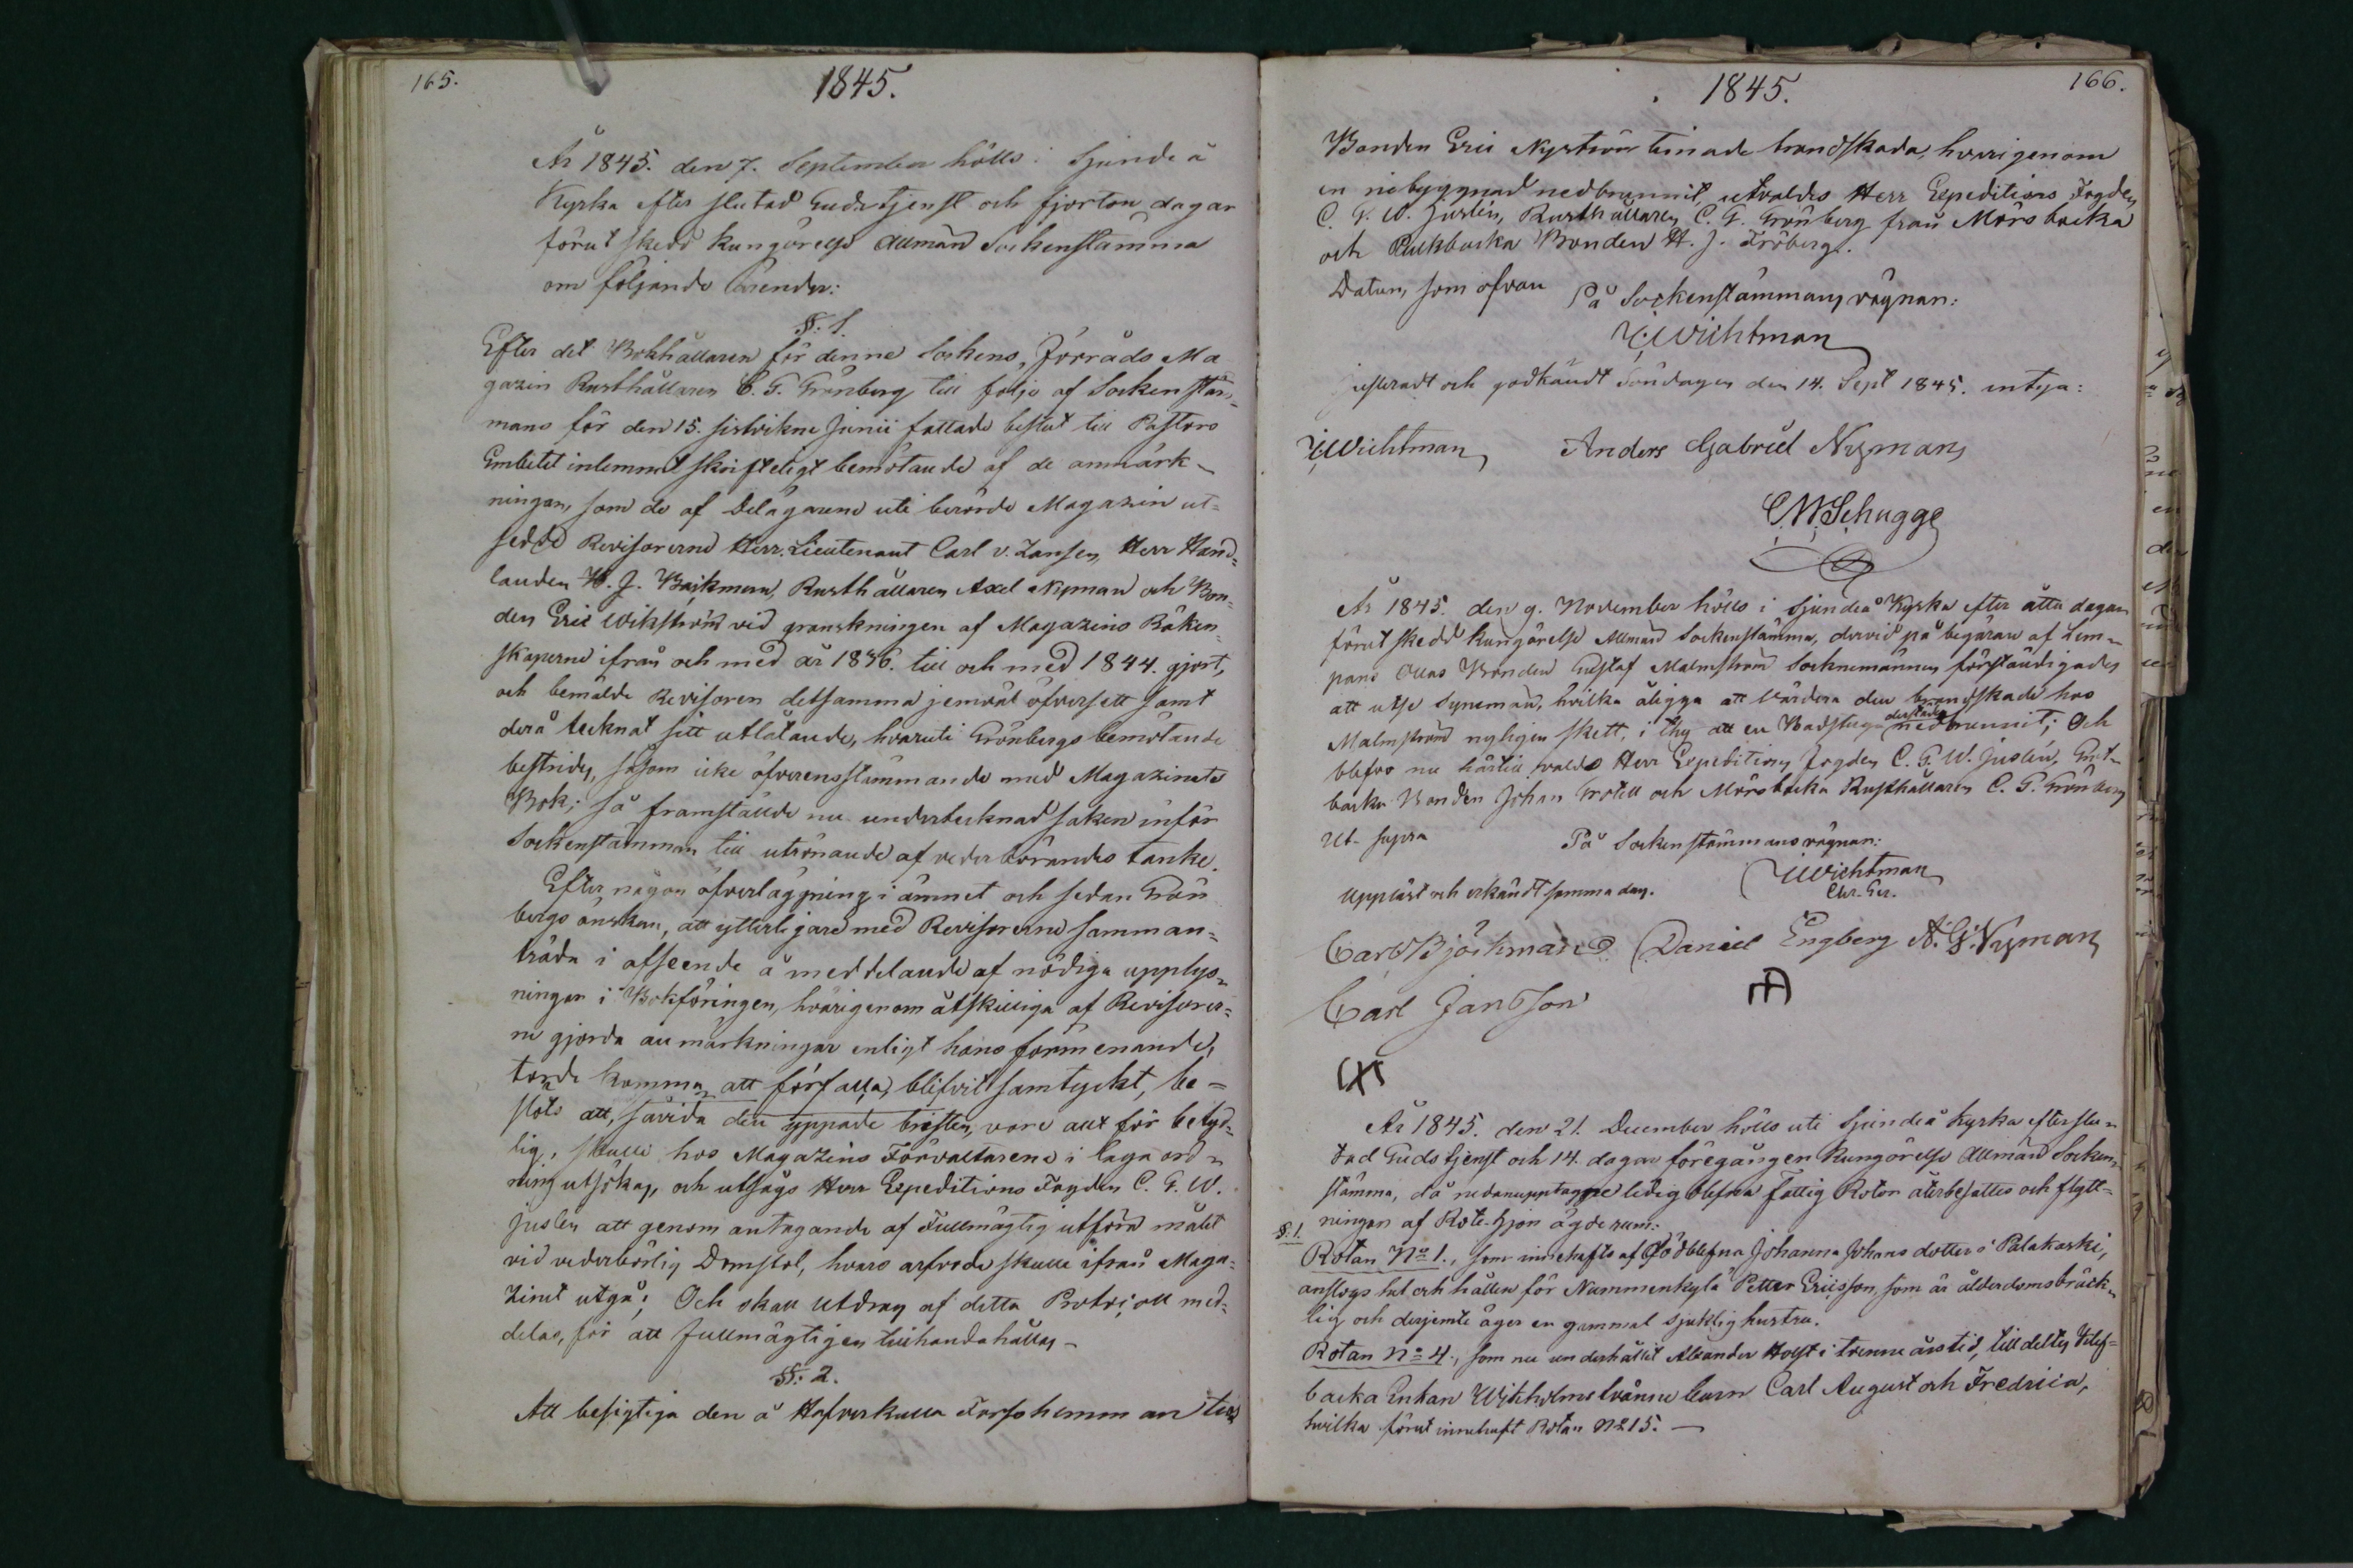 165.
1845.
År 1845. den 7. September hölls i Sjundeå
Kyrka efter slutad Gudstjenst och fjorton dagar
förut skedd kungörelse Allmän Sockenstämma
om följande ärender:
§. 1.
Efter det Bokhållaren för denne Sockens Förråds Ma
gazin Rusthållaren C. G. Grönberg till följe af Sockenstäm-
mans för den 15. sistvikne Junii fattade beslut till Pastors
Embetet inlemnat skrifteligt bemötande af de anmärk-
ningar, som de af Delägarene uti berörde Magazin ut-
sedde Revisorerne Herr Lieutenant Carl v. Zansen, Herr Hand-
landen H. J. Backman, Rusthållaren Axel Nyman och Bon-
den Eric Wikström vid granskningen af Magazins Räken-
skaperne ifrån och med år 1836. till och med 1844. gjort,
och bemälde Revisorer detsamma jemväl öfversett samt
derå tecknat sitt utlåtande, hvaruti Grönbergs bemötande
bestrides, såsom icke öfverensstämmande med Magazinets
Bok; så framstäude nu undertecknad saken inför
Sockenstämman till utrönande af vederbörandes tanke.
Efter någon öfverläggning i ämnet och sedan Grön
bergs önskan, att ytterligare med Revisorerne samman-
träda i afseende å meddelande af nödiga upplys-
ningar i Bokföringen, hvarigenom åtskilliga af Revisorer-
ne gjorda anmärkningar enligt hans förmenande,
torde komma att förfalla, blifvit samtyckt, be-
slöts att, såvida den yppade bristen, vore allt för betyd-
lig, skulle hos Magazins Förvaltarene i laga ord-
ning utsökas, och utsågs Herr Expeditions Fogden C. G. W.
Juslén att genom antagande af Fullmägtig utföra målet
vid vederbörlig Domstol, hvars arfvode skulle ifrån Maga-
zinet utgå; Och skall Utdrag af detta Protocoll med-
delas, för att Fullmägtigen tillhandahållas -
§. 2.
Att besigtiga den å Hafverkulla Torpshemman tid
1845.
166.
Bonden Eric Nyström timade brandskada, hvarigenom
en ribyggnad nedbrunnit, utvaldes Herr Expeditions Fogden
C. G. W. Juslén, Rusthållaren C. G. Grönberg från Mörsbacka
och Bonden H. J. Fröberg.
Datum, som ofvan
På Sockenstämmans vägnar:
Wichtman
justeradt och godkändt Söndagen den 14. Sept 1845. intyga:
Wichtman Anders Gabriel Nyman
C W Schugge
År 1845. den 9. November hölls i Sjundeå Kyrka efter åtta dagar
förut skedd kungörelse Allmän Sockenstämma, dervid på begäran af Lem-
pans Ollas Bonden Gustaf Malmström Socknemännen förständigades
att utse Synemän, hvilka åligga att värdera den brandskada hos
Malmström nyligen skett, i thy att en Badstuga derstädes nedbrunnit; Och
blefvo nu härtill valde Herr Expeditions Fogden C. G. W. Juslén,
backa Bonden Johan Grotell och Mörsbacka Rusthållaren C. G. Grönberg
Ut supra
På Sockenstämmans vägnar:
Wichtman
Uppläst och erkändt samma dag.
Carl Björkman Daniel Engberg A. G. Nyman
Carl Jansson
År 1845. den 21. December hölls uti Sjundeå Kyrka efter slu-
tad Gudstjenst och 14. dagar föregången Kungörelse Allmän Socken-
stämma, då nedanupptagne ledig blefna Fattig Rotor återbesattes och flytt-
ningen af Rote-hjon ägde rum:
§. 1.
Rotan No 1., som innehafts af Dödblefna Johanna Johans dotter i Palakoski,
anslogs hel och hållen för Nummenkylä Petter Ericsson, som är ålderdomsbräck-
lig och derjemte äger en gammal sjuklig hustru.
Rotan No 4., som nu underhållit Alexander Holst i trenne års tid, tilldeltes
backa Enkan Wikholms tvänne barn Carl August och Fredrica,
hvilka förut innehaft Rotan No 15. —